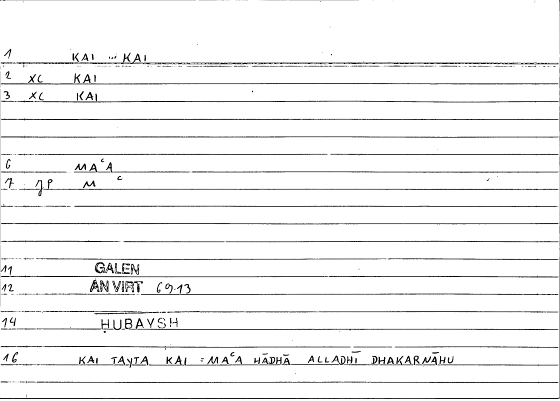 1 KAI ... KAI
2 XC KAI
3 XC KAI
6 MAᶜA
7 JP M ᶜ
11 GALEN
12 AN VIRT 69.13
14 ḤUBAYSH
16 KAI TAYTA KAI = MAᶜA HĀDHĀ ALLADHĪ DHAKARNĀHU